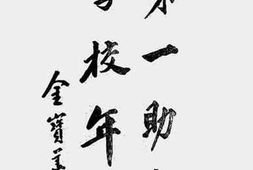 一助
校年
金寶善